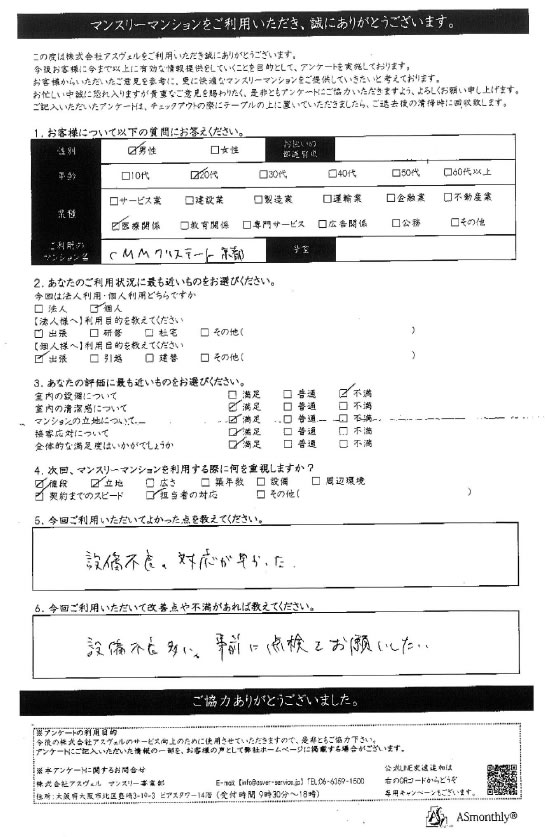 マンスリーマンションをご利用いただき、誠にありがとうございます。
この度は株式会社アスヴェルをご利用いただき誠にありがとうございます。
今後お客様に今まで以上に有効な情報提供をしていくことを目的として、アンケートを実施しております。
お客様からいただいたご意見を参考に、更に快適なマンスリーマンションをご提供していきたいと考えております。
お忙しい中誠に恐れ入りますが貴重なご意見を賜わりたく、是非ともアンケートにご協力いただきますよう、よろしくお願い申し上げます。
ご記入いただいたアンケートは、チェックアウトの際にテーブルの上に置いていただきましたら、ご退去後の清掃時に回収致します。
1. お客様について以下の質問にお答えください。
性別 ☑男性 □女性 お住いの都道府県
年齢 □10代 ☑20代 □30代 □40代 □50代 □60代以上
業種 □サービス業 □建設業 □製造業 □運輸業 □金融業 □不動産業
☑医療関係 □教育関係 □専門サービス □広告関係 □公務 □その他
ご利用のマンション名 CMMクリステート京都 号室
2. あなたのご利用状況に最も近いものをお選びください。
今回は法人利用・個人利用どちらですか
□ 法人 ☑ 個人
【法人様へ】利用目的を教えてください
☑ 出張 □ 研修 □ 社宅 □ その他( )
【個人様へ】利用目的を教えてください
☑ 出張 □ 引越 □ 建替 □ その他( )
3. あなたの評価に最も近いものをお選びください。
室内の設備について □ 満足 □ 普通 ☑ 不満
室内の清潔感について ☑ 満足 □ 普通 □ 不満
マンションの立地について ☑ 満足 □ 普通 □ 不満
接客応対について ☑ 満足 □ 普通 □ 不満
全体的な満足度はいかがでしょうか ☑ 満足 □ 普通 □ 不満
4. 次回、マンスリーマンションを利用する際に何を重視しますか?
☑ 値段 ☑ 立地 □ 広さ □ 築年数 □ 設備 □ 周辺環境
☑ 契約までのスピード ☑ 担当者の対応 □ その他( )
5. 今回ご利用いただいてよかった点を教えてください。
設備不良の対応が早かった.
6. 今回ご利用いただいて改善点や不満があれば教えてください。
設備不良多い。事前に点検をお願いしたい
ご協力ありがとうございました。
※アンケートの利用目的
今後の株式会社アスヴェルのサービス向上のために使用させていただきますので、是非ともご協力下さい。
アンケートにご記入いただいた情報の一部を、お客様の声として弊社ホームページに掲載する場合がございます。
※本アンケートに関するお問合せ
株式会社アスヴェル マンスリー事業部 E-mail【info@asver-service.jp】TEL:06-6359-1500
住所:大阪府大阪市北区豊崎3-19-3 ピアスタワー14階 (受付時間 9時30分~18時)
公式LINE友達追加は
右のQRコードからどうぞ
専用キャンペーンもございます。
ASmonthly®